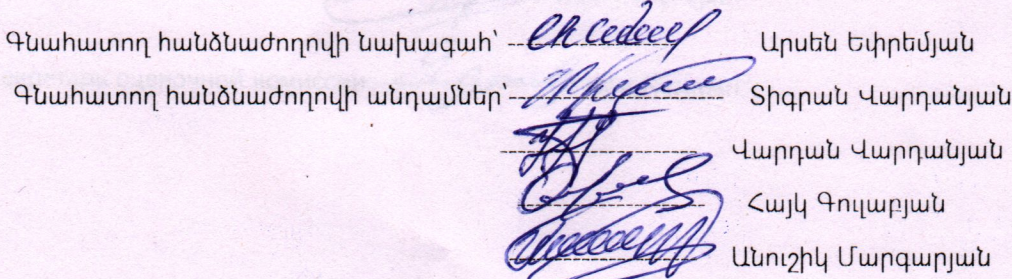 Գնահատող հանձնաժողովի նախագահ՝ Արսեն Եփրեմյան
Գնահատող հանձնաժողովի անդամներ՝ Տիգրան Վարդանյան
Վարդան Վարդանյան
Հայկ Գուլաբյան
Անուշիկ Մարգարյան